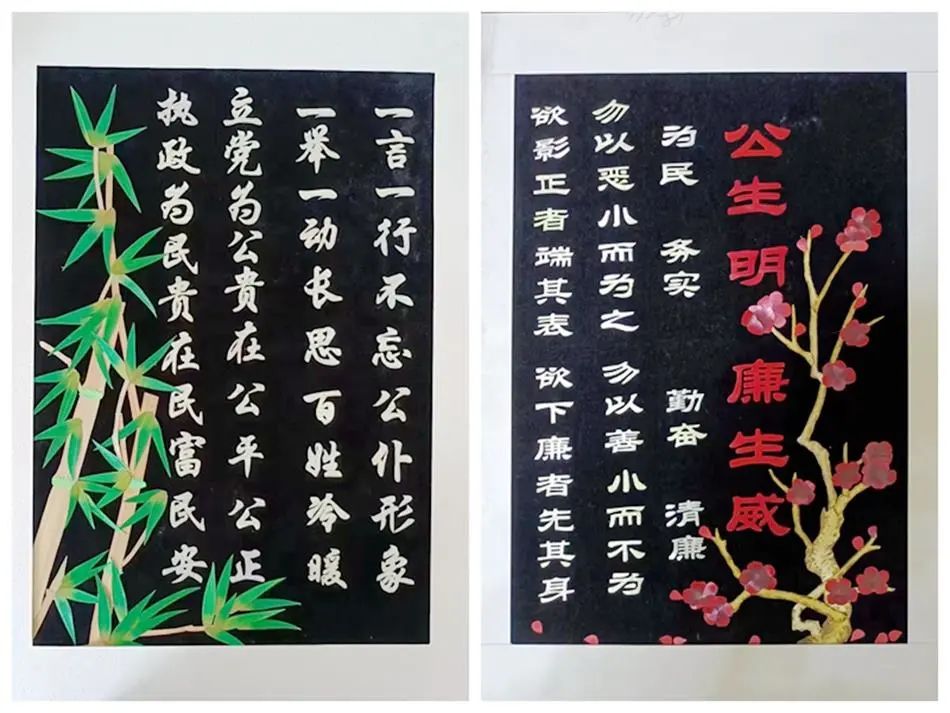 一言一行不忘公仆形象
一举一动长思百姓冷暖
立党为公贵在公平公正
执政为民贵在民富民安
公生明廉生威
为民 务实 勤奋 清廉
勿以恶小而为之 勿以善小而不为
欲影正者端其表 欲下廉者先其身